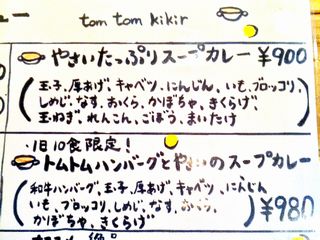 ュー tom tom kikir
やさいたっぷりスープカレー ¥900
(玉子、厚あげ、キャベツ、にんじん、いも、ブロッコリ、
しめじ、なす、おくら、かぼちゃ、きくらげ
玉ねぎ、れんこん、ごぼう、まいたけ)
1日10食限定!
トムトムハンバーグとやさいのスープカレー
(和牛ハンバーグ、玉子、厚あげ、キャベツ、にんじん
いも、ブロッコリ、しめじ、なす、おくら、
かぼちゃ、きくらげ) ¥980